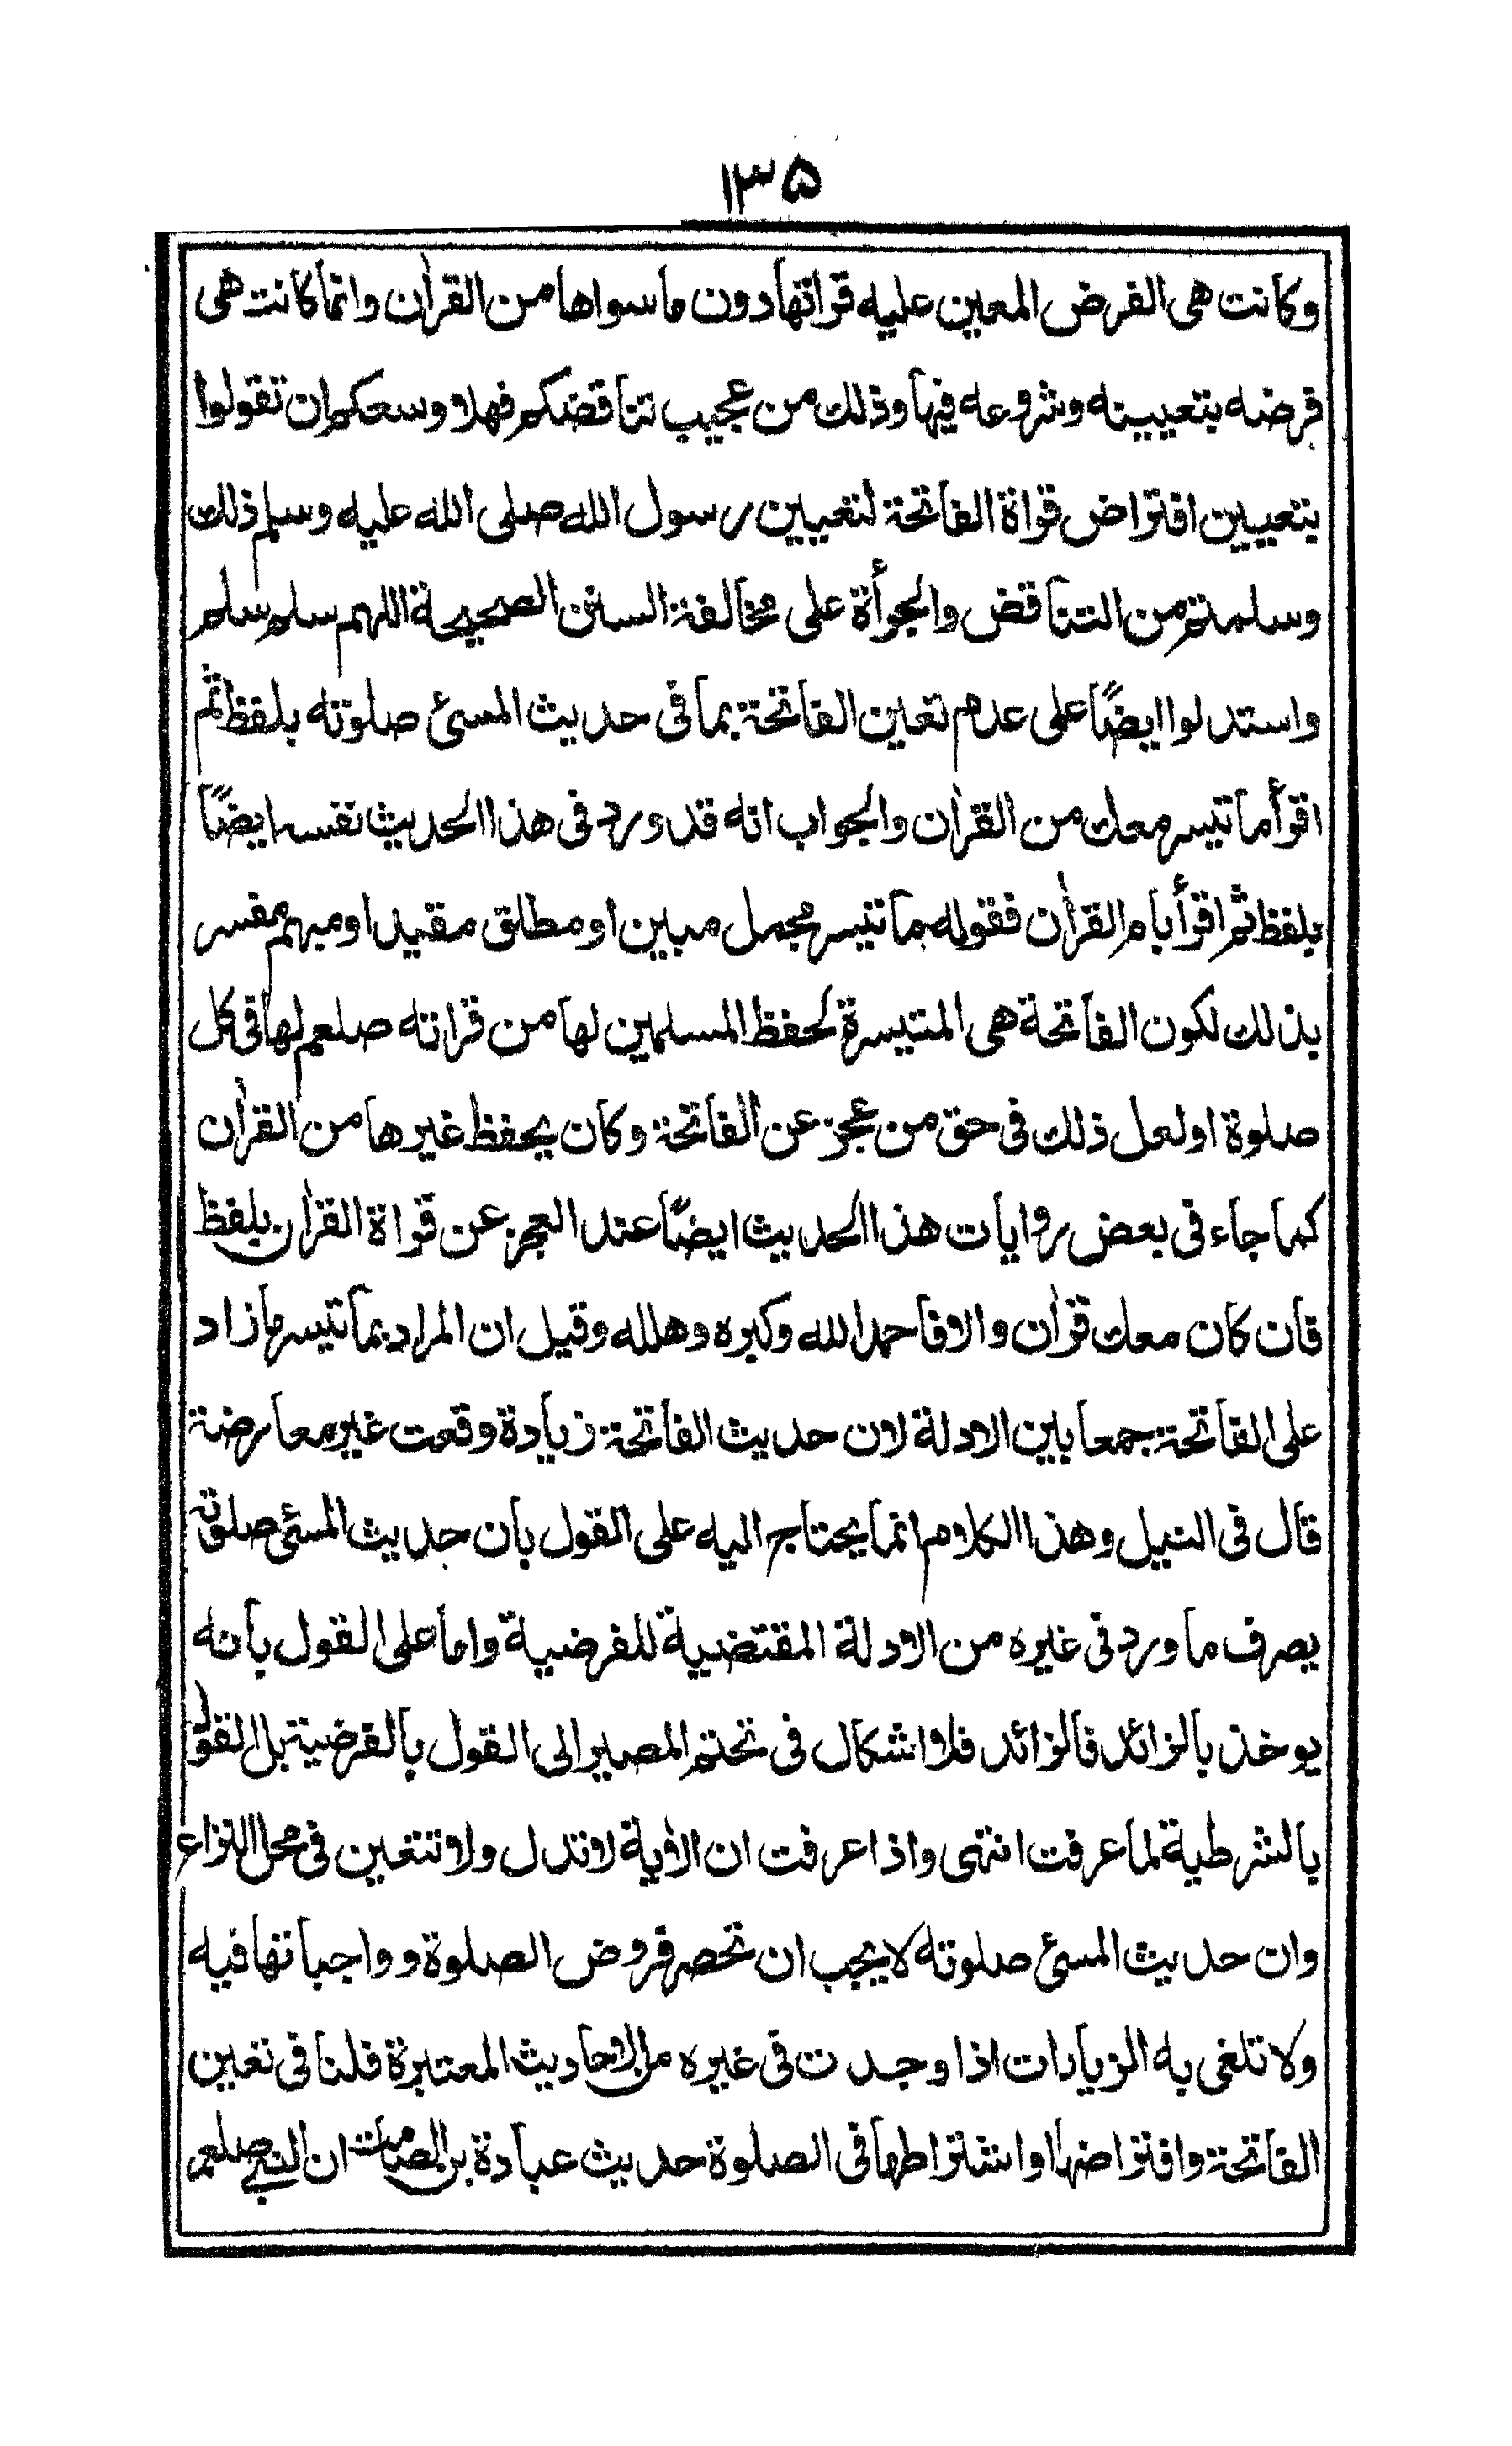 ۱۳۵
وكانت هى الفرض المعين عليه قراتها دون ما سواها من القرأن وانما كانت هى
فرضه بتعيينه وشروعه فيها وذلك من عجيب تناقضكم فهلا وسعكم ان تقولوا
بتعيين افتراض قراة الفاتحة لتعيين رسول الله صلى الله عليه وسلم ذلك
وسلمتم من التناقض والجرأة على مخالفة السنن الصحيحة اللهم سلم سلم
واستدلوا ايضًا على عدم تعين الفاتحة بما فى حديث المسئ صلوته بلفظ ثم
اقرأ ما تيسر معك من القرأن والجواب انه قد ورد فى هذا الحديث نفسه ايضًا
بلفظ ثم اقرأ بام القرأن فقوله ما تيسر مجمل مبين او مطلق مقيد او مبهم مفسر
بذلك لكون الفاتحة هى المتيسرة لحفظ المسلمين لها من قراته صلعم لها فى كل
صلوة او لعل ذلك فى حق من عجز عن الفاتحة وكان يحفظ غيرها من القرأن
كما جاء فى بعض روايات هذا الحديث ايضًا عند العجز عن قراة القرأن بلفظ
فان كان معك قرأن والا فاحمد الله وكبره وهلله وقيل ان المراد بما تيسر ما زاد
على الفاتحة جمعا بين الادلة لان حديث الفاتحة زيادة وقعت غير معارضة
قال فى النيل وهذا الكلام انما يحتاج اليه على القول بان حديث المسئ صلوته
يصرف ما ورد فى غيره من الادلة المقتضية للفرضية واما على القول بانه
يوخذ بالزائد فالزائد فلا اشكال فى تحتم المصير الى القول بالفرضية بل القول
بالشرطية لما عرفت انتهى واذا عرفت ان الأية لا تدل ولا تتعين فى محل النزاع
وان حديث المسئ صلوته لا يجب ان تحصر فروض الصلوة وواجباتها فيه
ولا تلغى به الزيادات اذا وجدت فى غيره من الاحاديث المعتبرة فلنا فى تعين
الفاتحة وافتراضها واشتراطها فى الصلوة حديث عبادة بن الصامت ان النبى صلعم